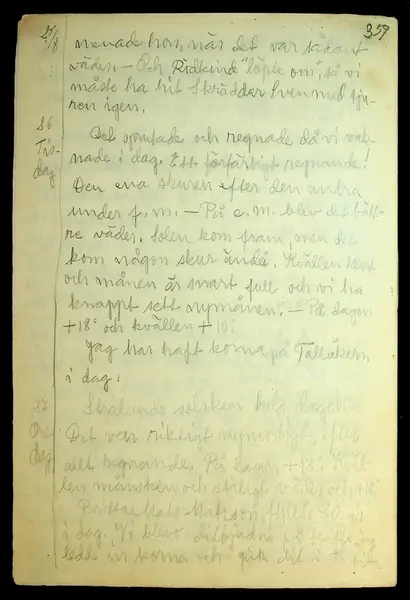 359
25/8
menade hon, när det var sådant
väder. — Och Rödkind "löpte om", så vi
måste ha hit Skräddar Sven med tju-
ren igen.
26
Tis-
dag
Det sprutade och regnade då vi vak-
nade i dag. Ett förfärligt regnande!
Den ena skuren efter den andra
under f.m. — På e.m. blev det bätt-
re väder, solen kom fram, men det
kom någon skur ändå. Kvällen
och månen är snart full och vi ha
knappt sett nymånen! — På dagen
+18° och kvällen +10°.
Jag har haft korna på Tallåkern
i dag.
27
Ons
dag
Strålande solsken hela dagen.
Det var riktigt efter
allt regnande. På dagen +18°. Kväl-
len månsken och väder och +10°.
Mats Matsson fyller 50 år
i dag. Vi blev på
ledde in korna och gick dit i